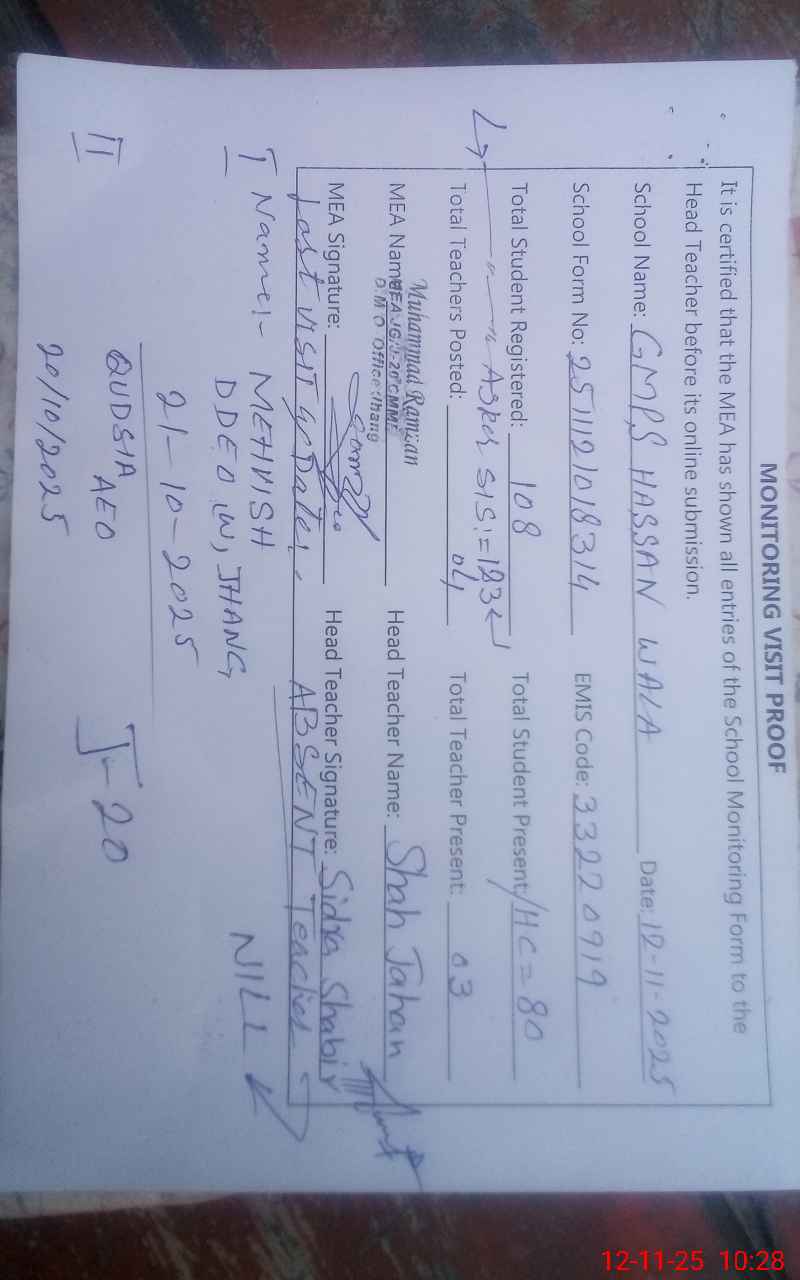 MONITORING VISIT PROOF
It is certified that the MEA has shown all entries of the School Monitoring Form to the
Head Teacher before its online submission.
School Name: GMPS HASSAN WALA Date: 12-11-2025
School Form No: 2511121018314 EMIS Code: 33220919
Total Student Registered: 108 Total Student Present/HC = 80
As per SIS:= 123
Total Teachers Posted: 04 Total Teacher Present: 03
Muhammad Ramzan
MEA Name: Head Teacher Name: Shah Jahan
D.M O Office Jhang
MEA Signature: Head Teacher Signature: Sidra Shabir
Last visit & Date:- ABSENT Teacher
I Name:- MEHVISH NILL
DDEO W, JHANG
21-10-2025
II QUDSIA J-20
AEO
20/10/2025
12-11-25 10:28